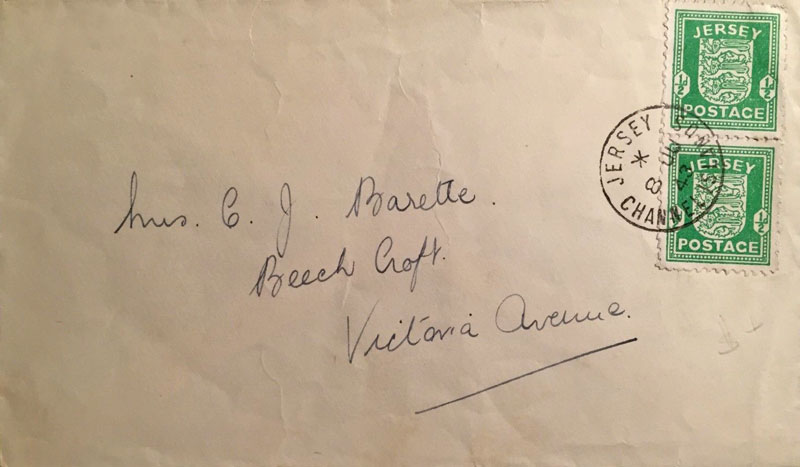 JERSEY
½ ½
POSTAGE
JERSEY
½
POSTAGE
JERSEY
CHANNEL IS
*
8
43
Mrs. C. J. Barette.
Beech Croft.
Victoria Avenue.